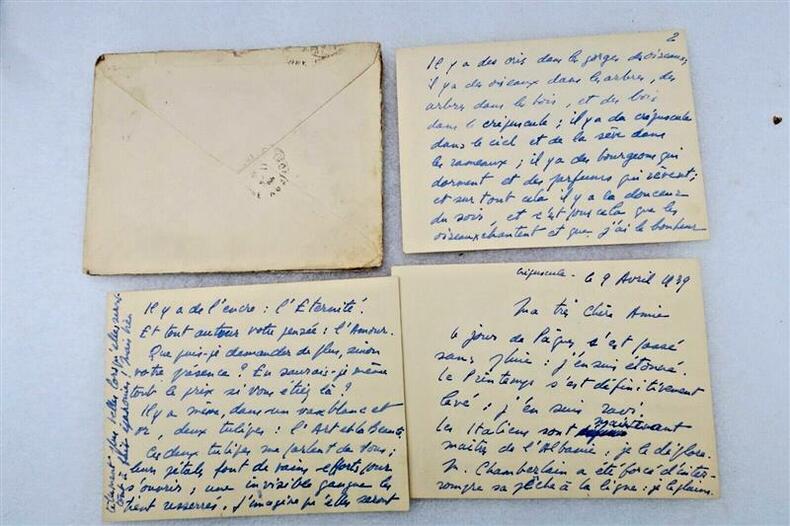 Crépuscule - le 9 Avril 1939
Ma très chère Amie
Le jour de Pâques s'est passé
sans pluie : j'en suis étonné.
Le Printemps s'est définitivement
levé : j'en suis ravi.
Les Italiens sont maintenant
maîtres de l'Albanie : je le déplore.
M. Chamberlain a été forcé d'inter-
rompre sa pêche à la ligne : je le plains.
2
Il y a des cris dans les gorges des oiseaux,
il y a des oiseaux dans les arbres, des
arbres dans les bois, et des bois
dans le crépuscule ; il y a du crépuscule
dans le ciel et de la sève dans
les rameaux ; il y a des bourgeons qui
dorment et des parfums qui rêvent ;
et sur tout cela il y a la douceur
du soir, et c'est pour cela que les
oiseaux chantent et que j'ai le bonheur
Il y a de l'encre : l'Eternité.
Et tout autour votre pensée : l'Amour.
Que puis-je demander de plus, sinon
votre présence ? En saurais-je même
tout le prix si vous étiez là ?
Il y a même, dans un vase blanc et
or, deux tulipes : l'Art et la Beauté.
Ces deux tulipes me parlent de vous ;
leurs pétales font de vains efforts pour
s'ouvrir ; une invisible gangue les
tient resserrés. J'imagine qu'elles seront
tellement plus belles lorsqu'elles seront
tout à fait épanouies ! Mais bien